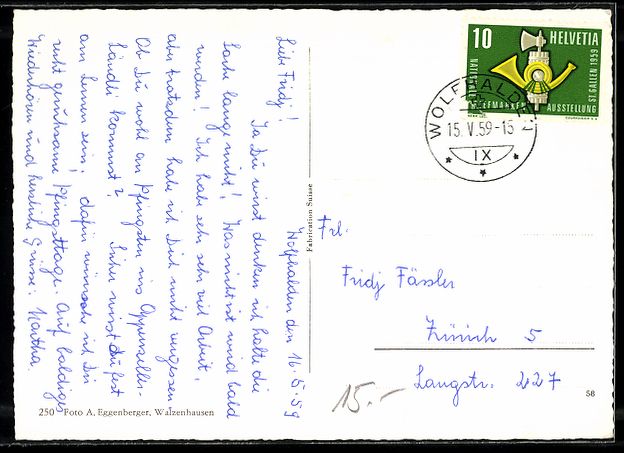 Wolfhalden den 16.5.59
Liebe Fridj!
Ja Du wirst denken ich halte die
Sache lang nicht! Was nicht ist wird bald
werden! Ich habe sehr sehr viel Arbeit,
aber trotzdem habe ich Dich nicht vergessen
Ob Du wohl an Pfingsten ins Appenzeller-
ländli kommst? Sicher wirst du fest
am lernen sein; dafür wünsche ich Dir
recht geruhsame Pfingsttage. Auf baldiges
Wiederhören und herzliche Grüsse: Martha.
250 Foto A. Eggenberger, Walzenhausen
Fabrication Suisse
10 HELVETIA
BRIEFMARKEN AUSSTELLUNG
ST. GALLEN 1959
COURVOISIER S.A.
WOLFHALDEN
15.V.59-15
IX
Frl.
Fridj Fässler
Zürich 5
Langstr. 227
15.-
58